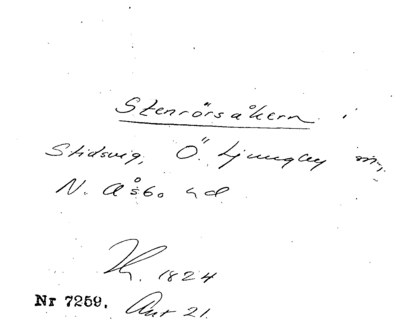 Stenrörsåkern i
Stidsvig, Ö. Ljungby sn,
N. Åsbo hd
1824
Nr 7259. Akt 21.